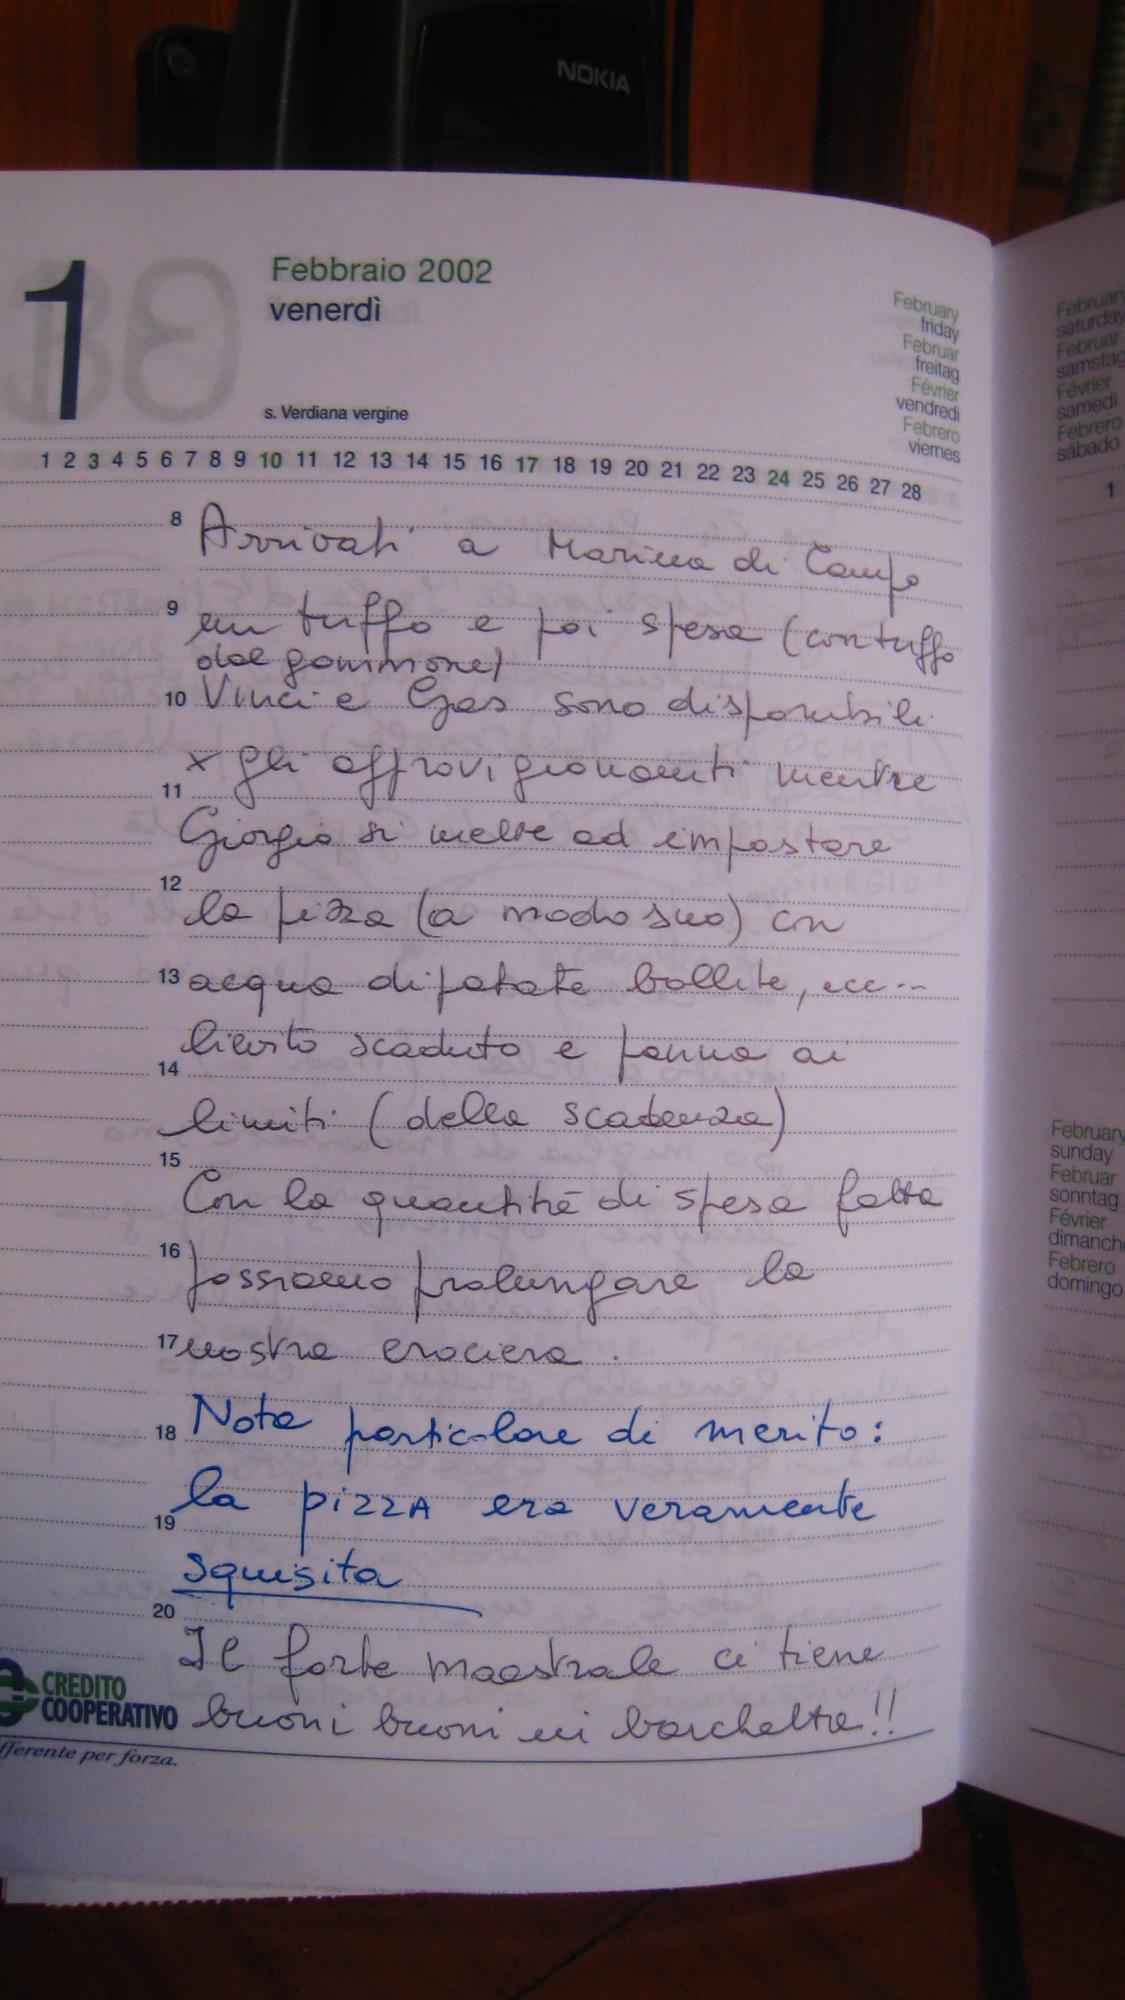 NOKIA
1
Febbraio 2002
venerdì
s. Verdiana vergine
February
friday
Februar
freitag
Février
vendredi
Febrero
viernes
1 2 3 4 5 6 7 8 9 10 11 12 13 14 15 16 17 18 19 20 21 22 23 24 25 26 27 28
8 Arrivati a Marina di Campo
9 un tuffo e poi spesa (con tuffo
dal gommone)
10 Vinci e Gas sono disponibili
x gli approvigionamenti mentre
11
Giorgio si mette ad impostare
12
la pizza (a modo suo) con
13 acqua di patate bollite, ecc...
lievito scaduto e panna ai
14
limiti (della scadenza)
15
Con la quantità di spesa fatta
16
possiamo prolungare la
17 nostra crociera.
18 Nota particolare di merito:
la pizza era veramente
19
squisita
20
Il forte maestrale ci tiene
buoni buoni in barchetta!!
CREDITO
COOPERATIVO
fferente per forza.
February
saturday
Februar
samstag
Février
samedi
Febrero
sábado
1
February
sunday
Februar
sonntag
Février
dimanche
Febrero
domingo